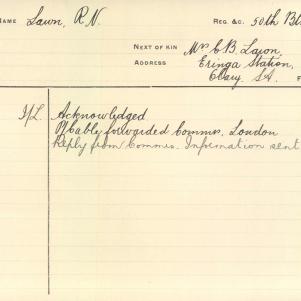 NAME Lawn, R.N. REG. &C. 50th
NEXT OF KIN Mrs C B Lawn
ADDRESS Eringa Station,
S.A. F
I/L. Acknowledged
forwarded Commrs. London
Reply from Commrs. Information sent